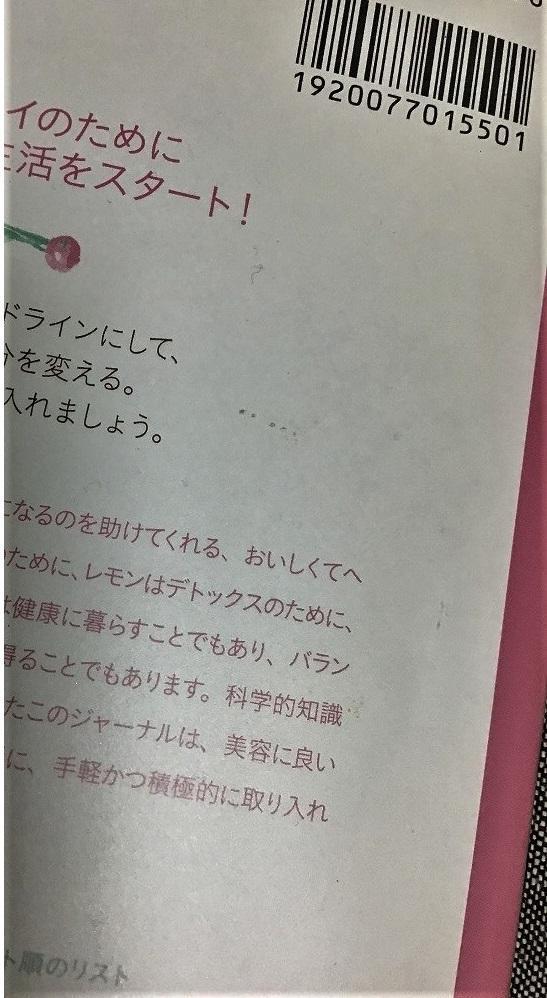 1920077015501
イのために
生活をスタート！
ドラインにして、
分を変える。
入れましょう。
になるのを助けてくれる、おいしくてヘ
のために、レモンはデトックスのために、
は健康に暮らすことでもあり、バラン
得ることでもあります。科学的知識
たこのジャーナルは、美容に良い
に、手軽かつ積極的に取り入れ
ト順のリスト